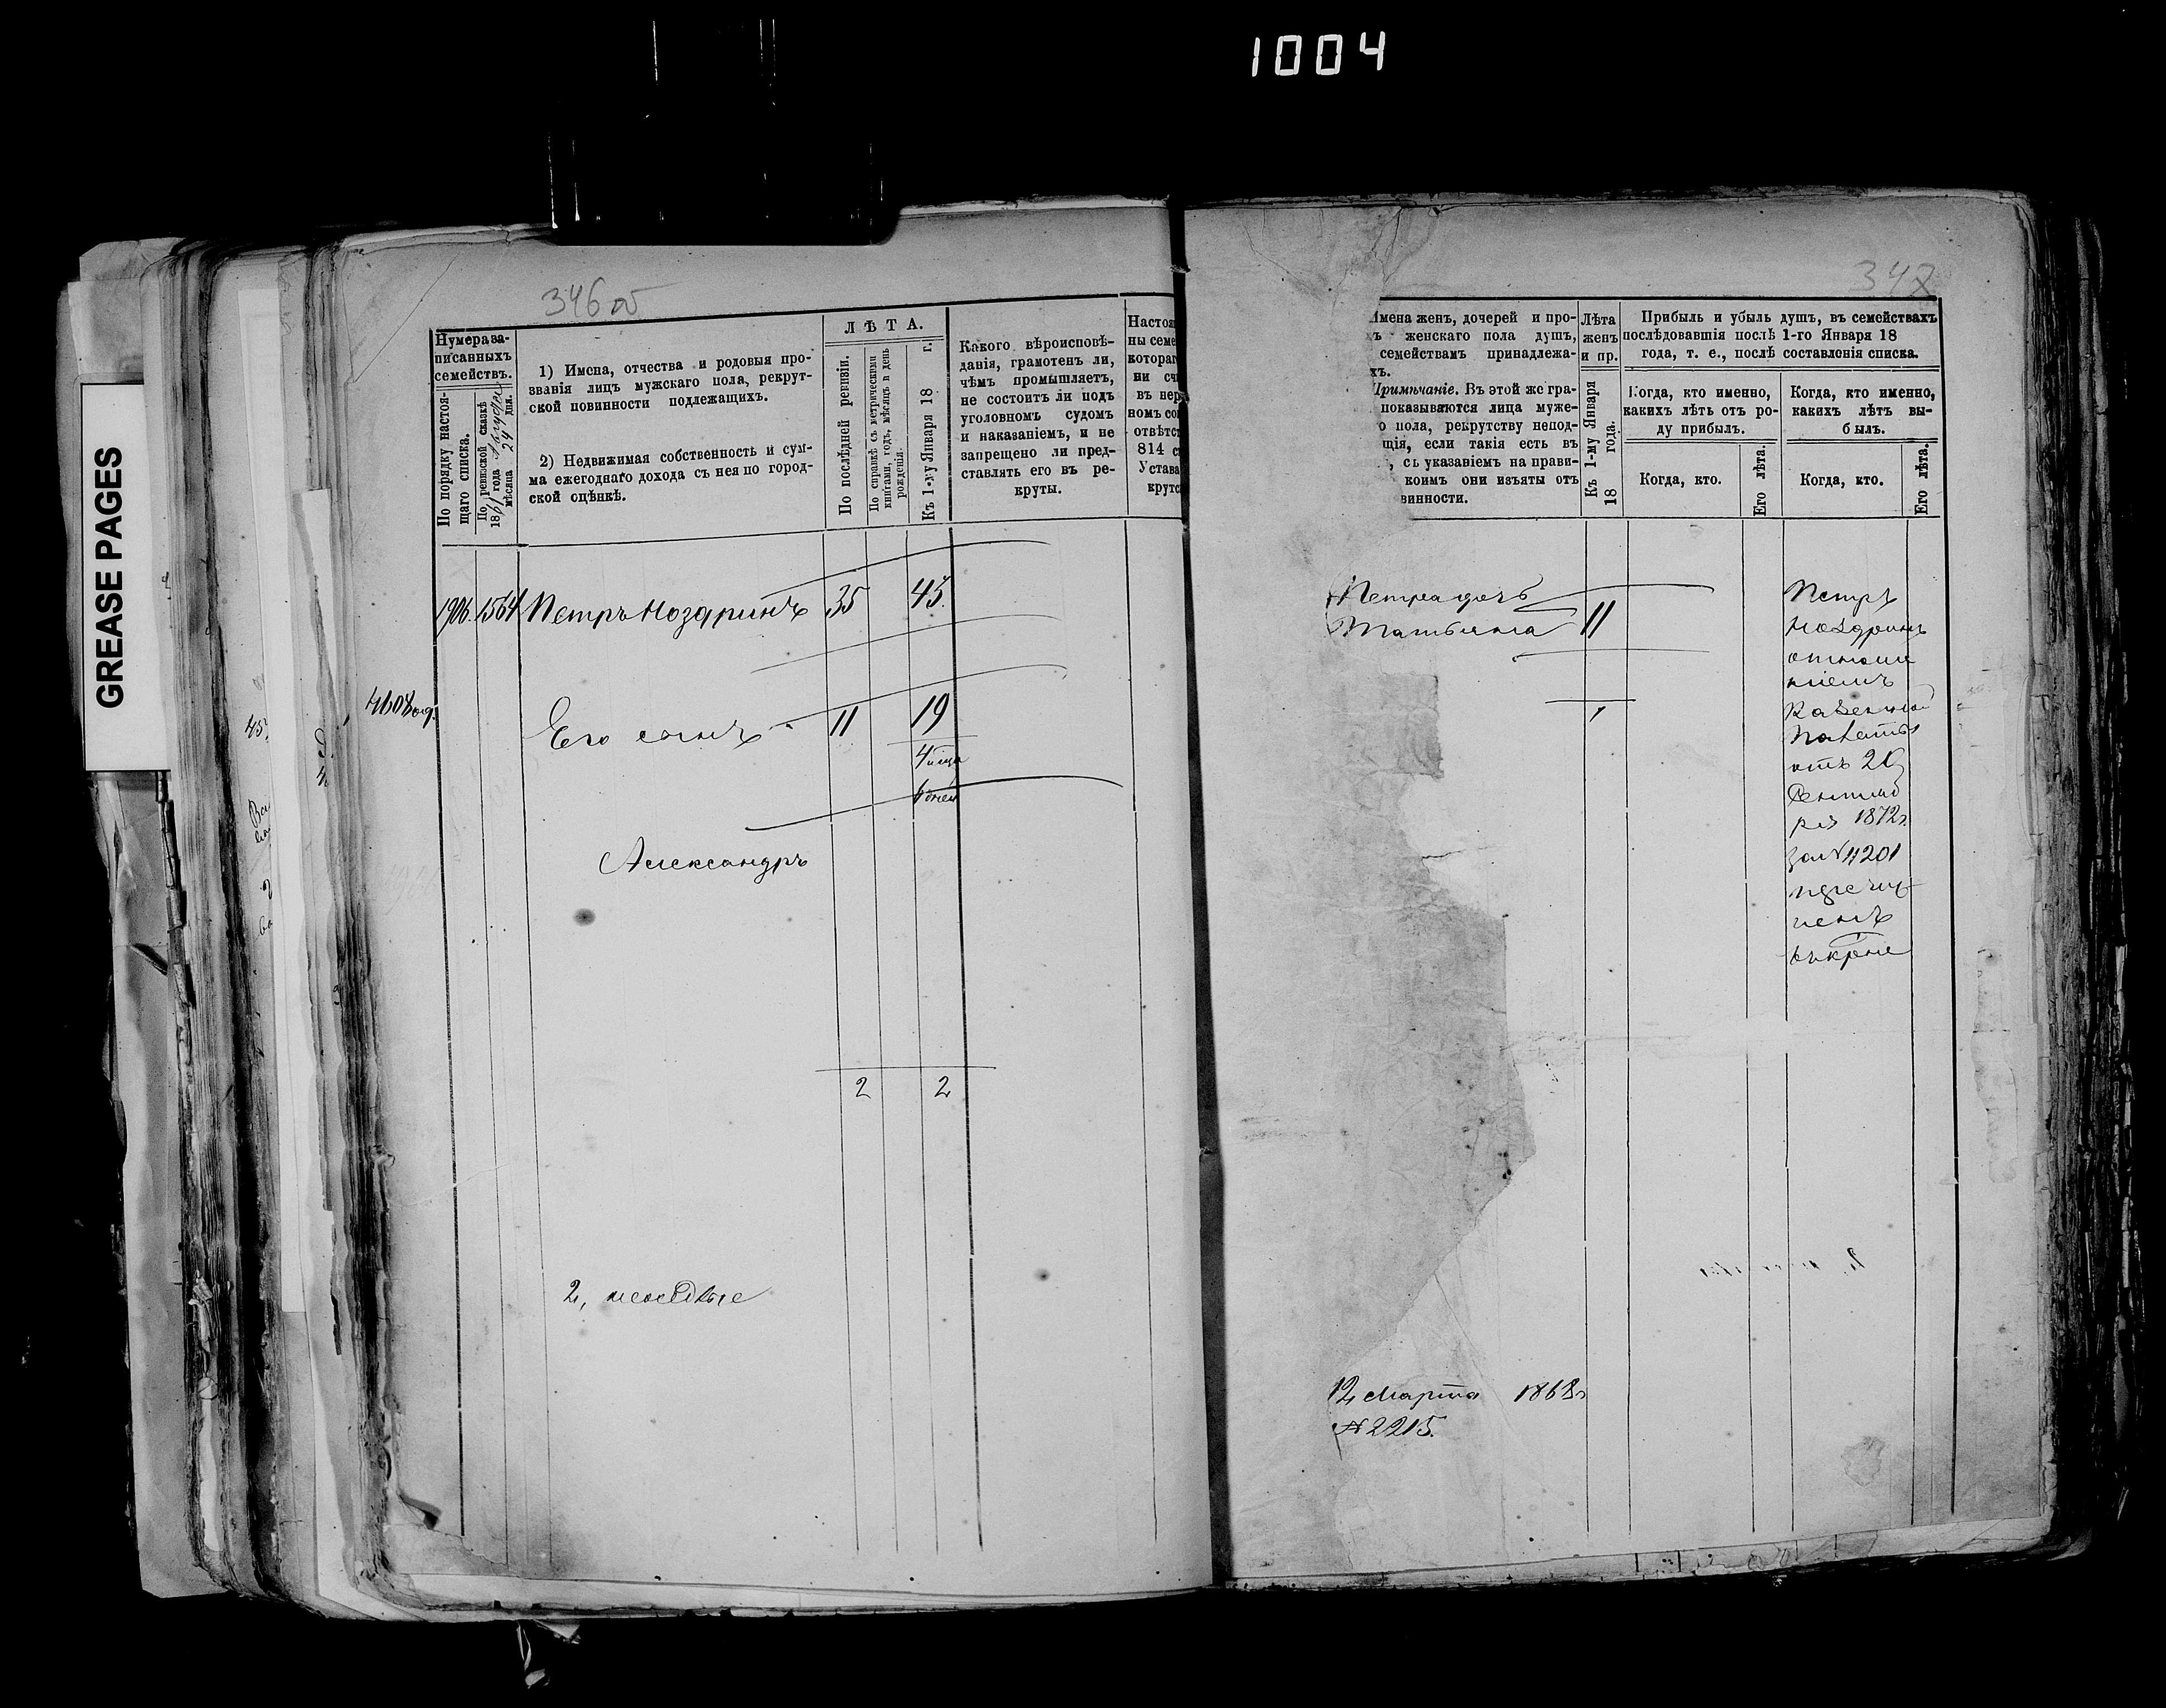 1004
GREASE PAGES
346 об
Нумера за-
писанныхъ
семействъ.
По порядку настоя-
щаго списка.
По ревизской сказкѣ
18 года
мѣсяца 24 дня.
1) Имена, отчества и родовыя про-
званія лицъ мужскаго пола, рекрут-
ской повинности подлежащихъ.
2) Недвижимая собственность и сум-
ма ежегоднаго дохода съ нея по город-
ской оцѣнкѣ.
ЛѢТА.
По послѣдней ревизіи.
По справкѣ съ метрическими
книгами, годъ, мѣсяцъ и день
рожденія.
Къ 1-му Января 18 г.
Какого вѣроисповѣ-
данія, грамотенъ ли,
чѣмъ промышляетъ,
не состоитъ ли подъ
уголовномъ судомъ
и наказаніемъ, и не
запрещено ли пред-
ставлять его въ ре-
круты.
Настоя
ны семе
котораг
ни сч
въ пер
номъ со
отвѣтс
814 с
Устава
крутс
1906. 1564 Петръ Ноздринъ 35 43.
Его сынъ 11 19
Александръ
2 2
2,
347
Имена женъ, дочерей и про-
ъ женскаго пола душъ,
семействамъ принадлежа-
хъ.
Примѣчаніе. Въ этой же гра-
показываются лица муже-
о пола, рекрутству непод-
щія, если такія есть въ
, съ указаніемъ на прави-
коимъ они изъяты отъ
винности.
Лѣта
женъ
и пр.
Къ 1-му Января
18 года.
Прибыль и убыль душъ, въ семействахъ
послѣдовавшія послѣ 1-го Января 18
года, т. е., послѣ составленія списка.
Когда, кто именно,
какихъ лѣтъ отъ ро-
ду прибылъ.
Когда, кто.
Его лѣта.
Когда, кто именно,
какихъ лѣтъ вы-
былъ.
Когда, кто.
Его лѣта.
Петра дочь
Татьяна 11
1
Петръ
Ноздринъ
отноше
ніемъ
Казенной
Палаты
отъ
Сентяб
ря 1872г.
за №11201
пере
ленъ
12 Марта 1868г
№2215.